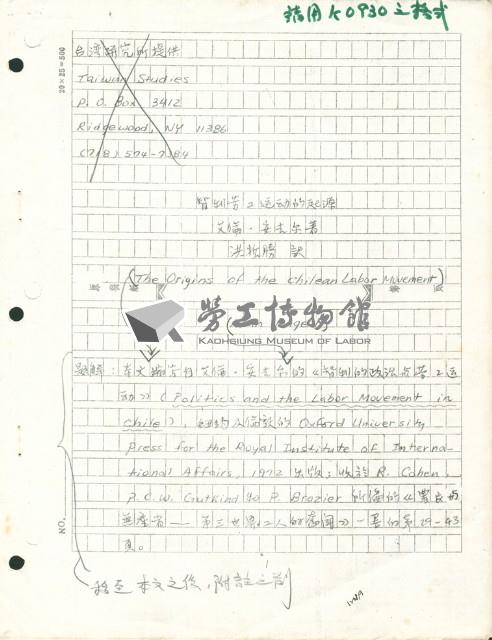 請用 K0930 之格式
20×25=500
台湾研究所提供
Taiwan Studies
P. O. Box 3412
Ridgewood, NY 11386
(718) 574-7384
智利劳工运动的起源
艾倫·安吉尔著
洪哲勝 訳
(The Origins of the Chilean Labor Movement)
勞工博物館
KAOHSIUNG MUSEUM OF LABOR
题解：本文
艾倫·安吉尔的《智利的政治与劳工运
动》(Politics and the Labor Movement in
Chile),
Oxford University
Press for the Royal Institute of Interna-
tional Affairs, 1972 出版；收於 R. Cohen,
P. C. W. Gutkind 和 P. Brazier 所编的《農民和
無產者——第三世界工人的奮鬥》一書的第 29-43
頁。
NO.
移至本文之後，附註之前